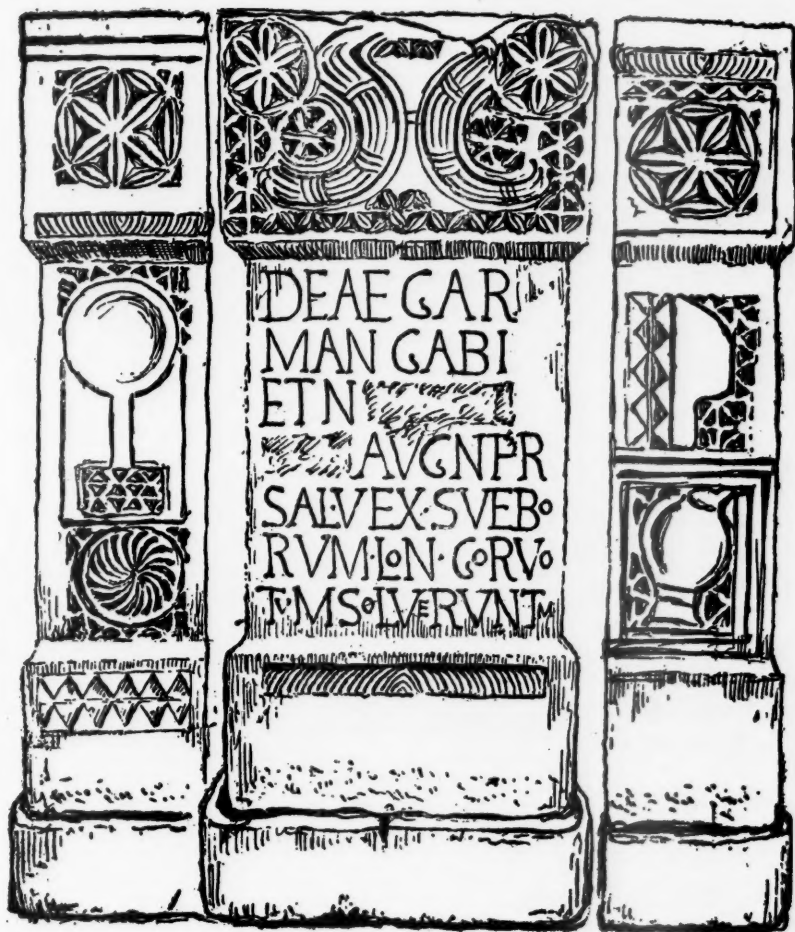 DEAE GAR
MANGABI
ET N
AVG N PR
SAL·VEX·SVEBO
RVM·LON·GOR VO
TVM SOLVERVNT M